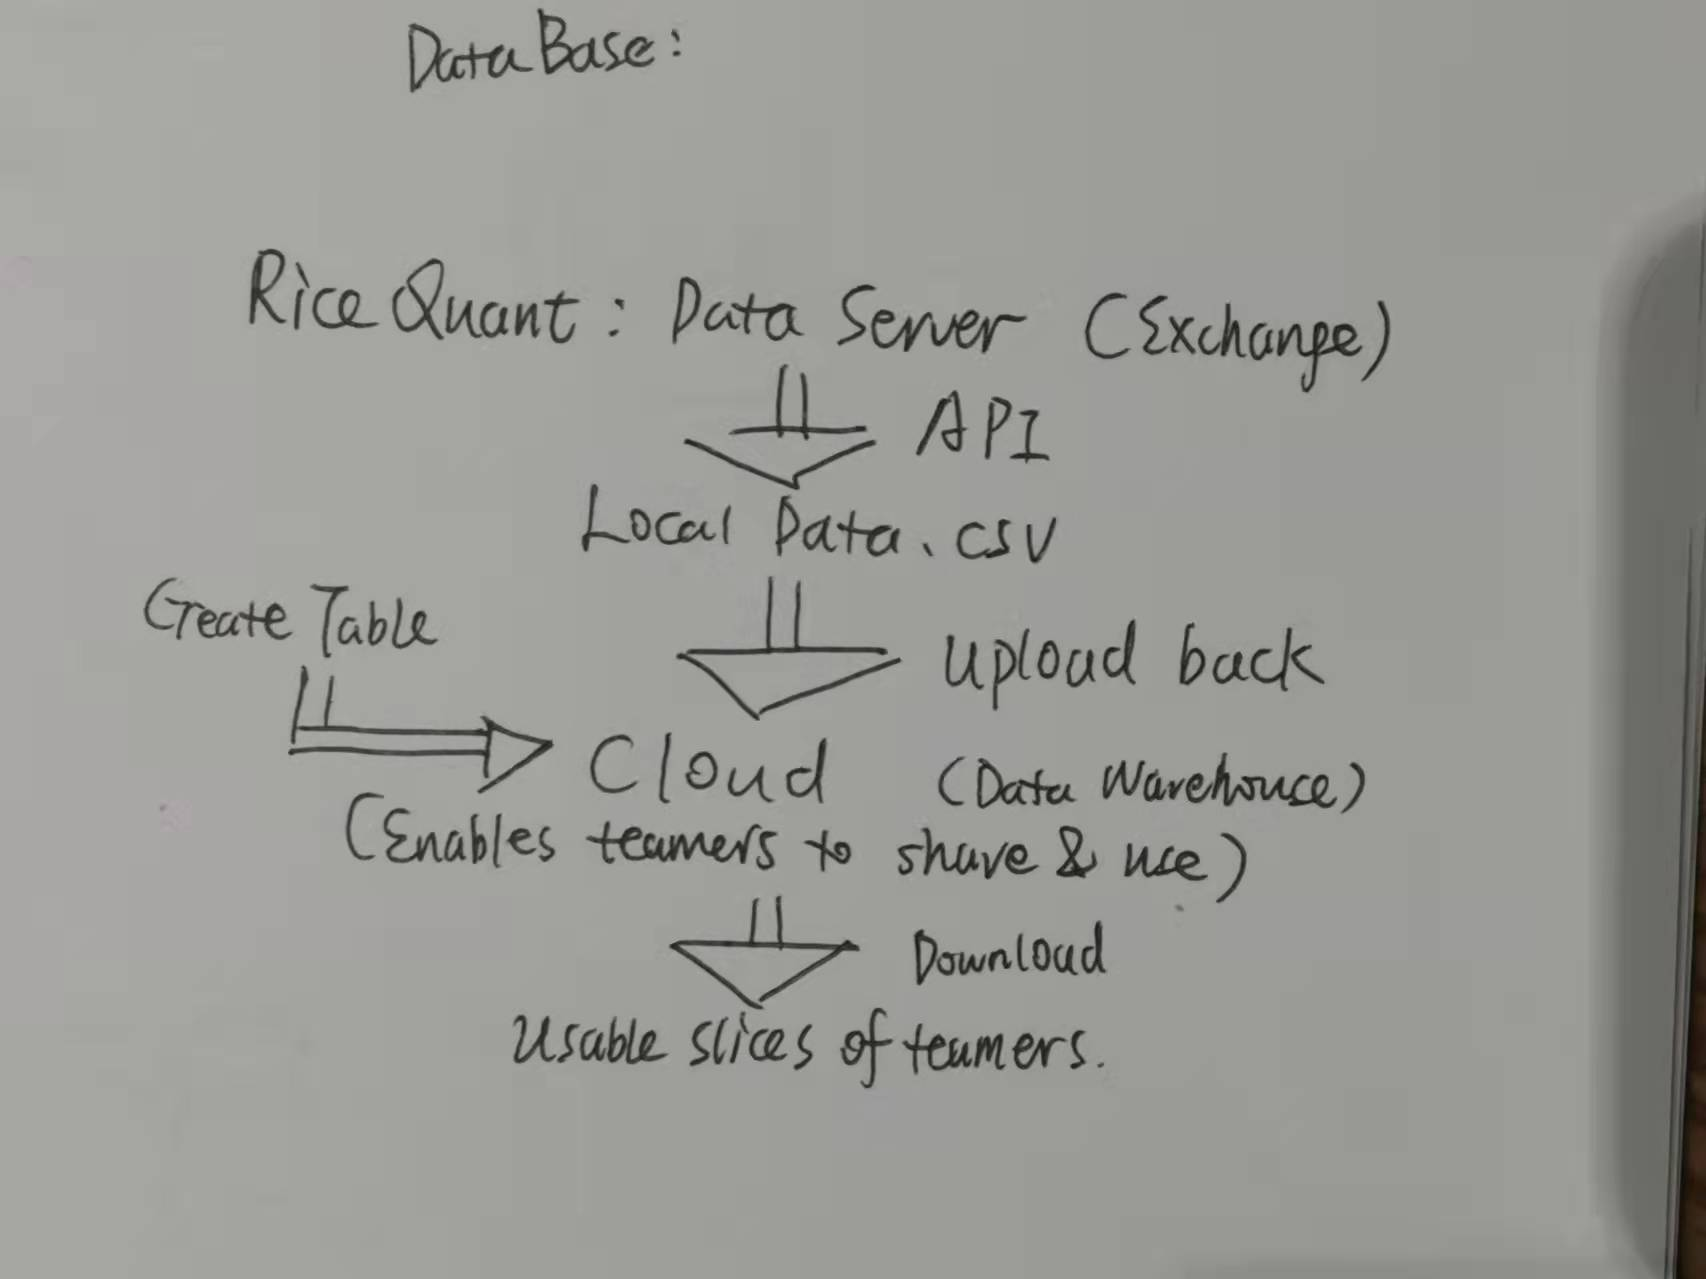 DataBase:
Rice Quant: Data Server (Exchange)
API
Local Data.csv
Create Table
upload back
Cloud (Data Warehouse)
(Enables teamers to share & use)
Download
Usable slices of teamers.